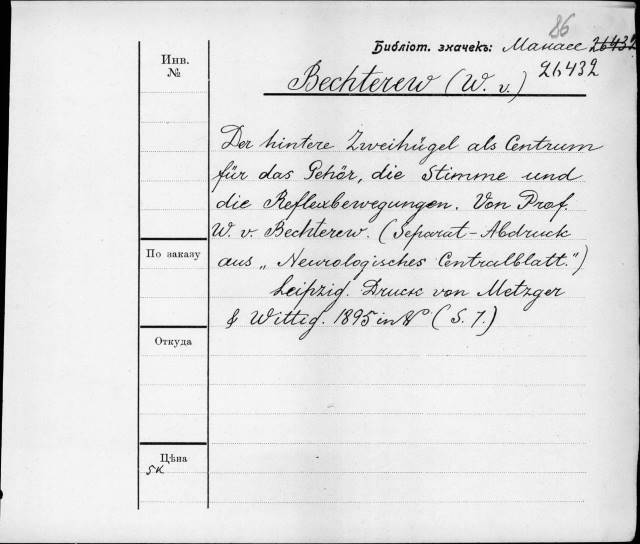 86
Библіот. значекъ: Манасс 26432
26432
Инв.
№
Bechterew (W. v.)
Der hintere Zweihügel als Centrum
für das Gehör, die Stimme und
die Reflexbewegungen. Von Prof.
W. v. Bechterew. (Separat-Abdruck
aus „Neurologisches Centralblatt.")
Leipzig. Druck von Metzger
& Wittig. 1895 in 8° (S. 7.)
По заказу
Откуда
Цѣна
5к